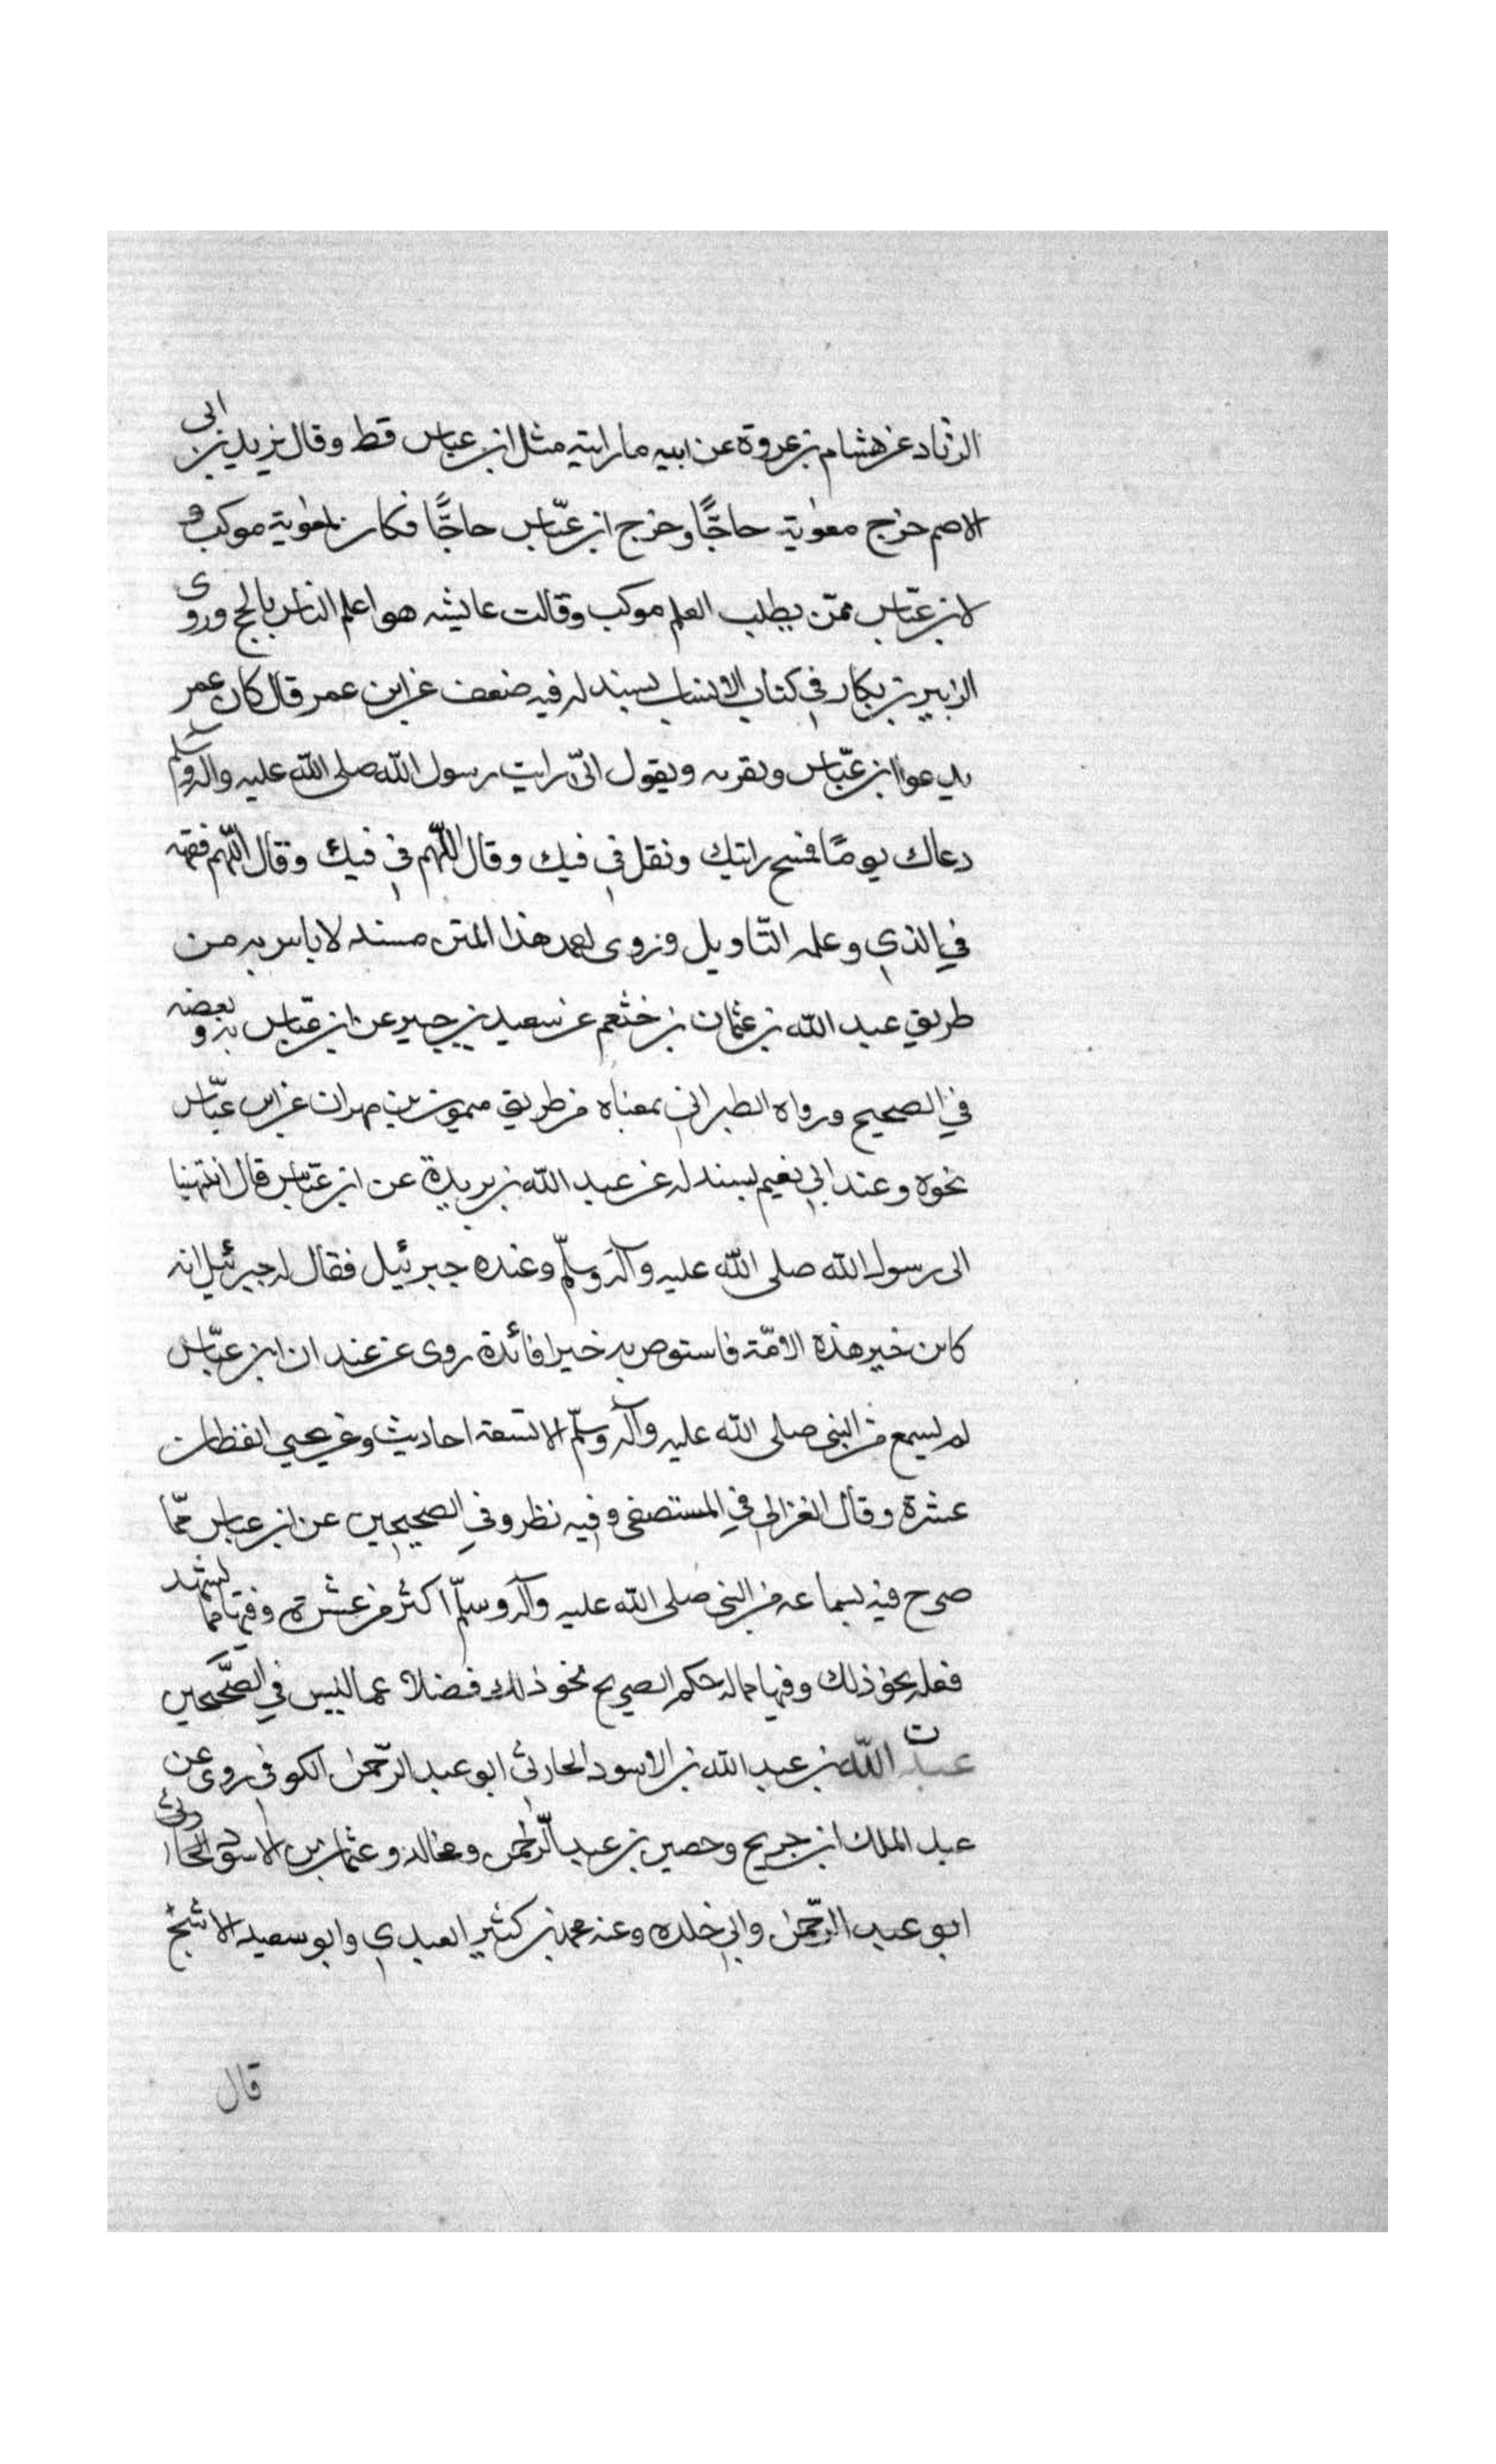 الزناد عن هشام بن عروة عن ابيه ما رايته مثل ابن عباس قط وقال يزيد بن ابى
الاصم خرج معوية حاجًّا وخرج ابن عبّاس حاجًّا فكان لمعوية موكب و
لابن عبّاس ممّن يطلب العلم موكب وقالت عايشه هو اعلم الناس بالحج وروى
الزبير بن بكار في كتاب الانساب بسند له فيه ضعف عن ابن عمر قال كان عمر
يدعوا ابن عبّاس ويقربه ويقول انّى رايت رسول الله صلى الله عليه واله وسلم
دعاك يومًا فمسح راتيك وتفل في فيك وقال اللّهم في فيك وقال اللّهم فقهه
في الذي وعلمه التّاويل وزوى لعمد هذا المتن مسنده لا باس به من
طريق عبد الله بن عثمان بن خثعم عن سعيد بن جبير عن ابن عبّاس به وبعضه
في الصحيح ورواه الطبراني بمعناه من طريق ميمون بن مهران عن ابن عبّاس
نحوه وعند ابي نعيم بسند له عن عبد الله بن بريدة عن ابن عبّاس قال انتهينا
الى رسول الله صلى الله عليه وآله وسلّم وعنده جبرئيل فقال له جبرئيل انه
كاين خير هذه الامّة فاستوص به خيرا فائدة روى عن غند ان ابن عبّاس
لم يسمع من النبي صلى الله عليه وآله وسلّم الا تسعة احاديث وعن يحيي القطان
عشرة وقال الغزالي في المستصفى وفيه نظر وفي الصحيحين عن ابن عباس ممّا
صرح فيه بسماعه من النبي صلى الله عليه وآله وسلّم اكثر من عشرة وفيها مما يشهد
فعله نحو ذلك وفيها ماله حكم الصريح نحو ذلك فضلا عما ليس في الصّحيحين
ت
عبد الله بن عبد الله بن الاسود الحارثي ابو عبد الرّحمن الكوفي روى عن
عبد الملك ابن جريح وحصين بن عبد الرّحمن ومخالد وعثمان بن الاسود الحارثى
ابو عبد الرّحمن وابي خلده وعنه محمد بن كثير العبدي وابو سعيد الاشج
قال